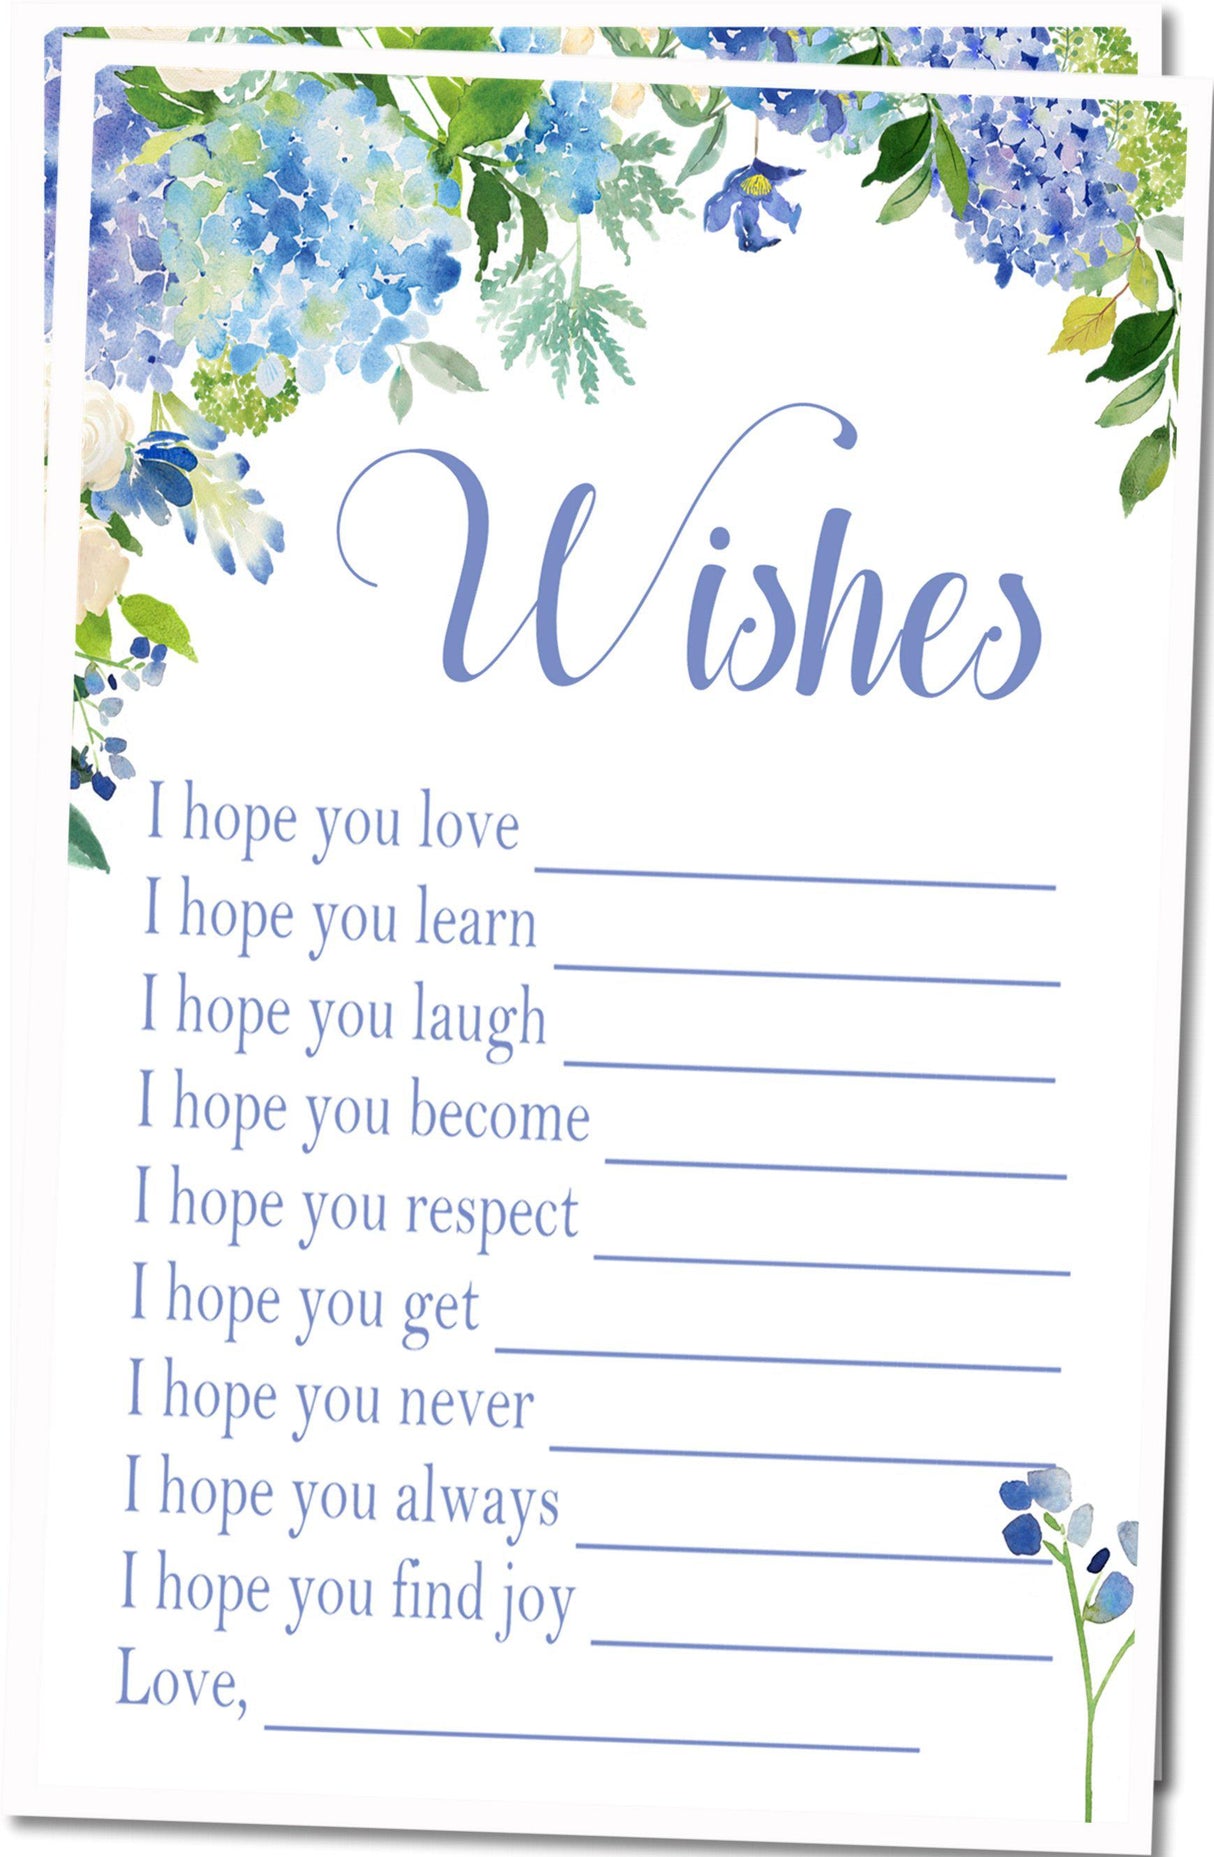 Wishes
I hope you love
I hope you learn
I hope you laugh
I hope you become
I hope you respect
I hope you get
I hope you never
I hope you always
I hope you find joy
Love,